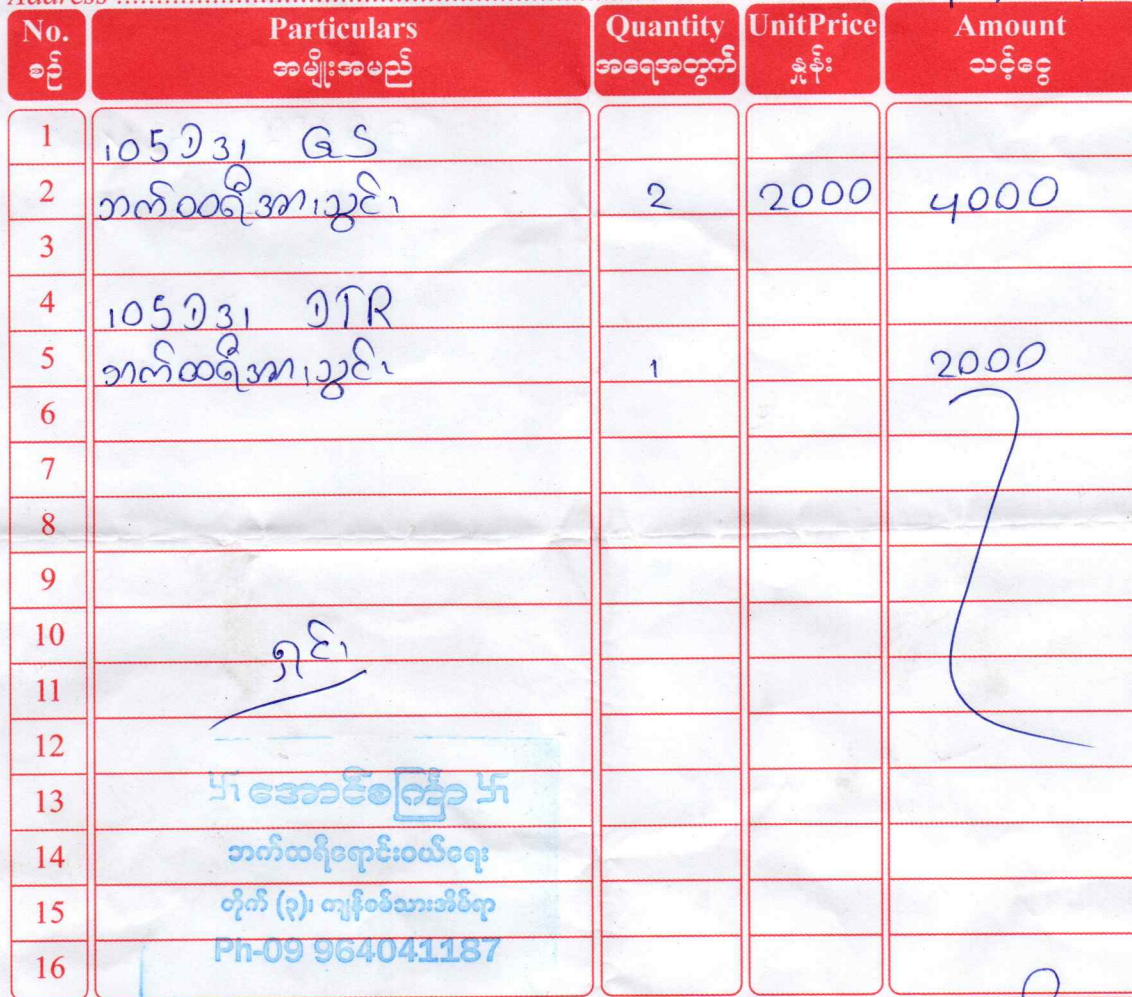 Address
No. Particulars Quantity UnitPrice Amount
စဉ် အမျိုးအမည် အရေအတွက် နှုန်း သင့်ငွေ
1 105D31 GS
2 ဘက်ထရီအားသွင်း 2 2000 4000
3
4 105D31 DTR
5 ဘက်ထရီအားသွင်း 1 2000
6
7
8
9
10 ရှင်း
11
12
13 卐 အောင်စကြာ 卐
14 ဘက်ထရီရောင်းဝယ်ရေး
15 တိုက် (၃)၊ ကျန်စစ်သားအိပ်ရာ
16 Ph-09 964041187